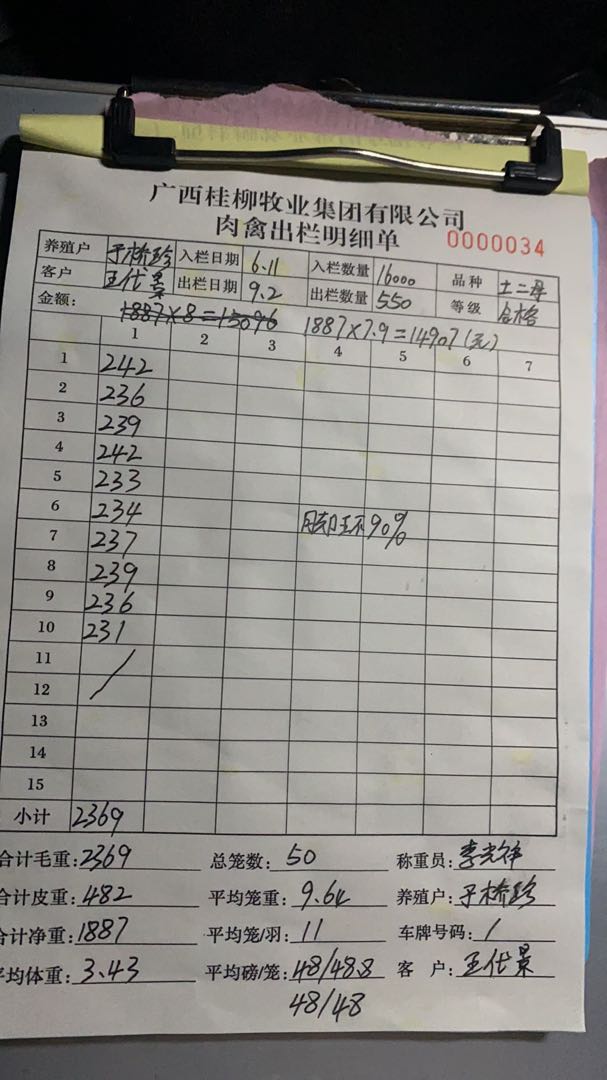 广西桂柳牧业集团有限公司
肉禽出栏明细单 0000034
养殖户 于桥珍 入栏日期 6.11 入栏数量 16000 品种 土二母
客户 王仕景 出栏日期 9.2 出栏数量 550 等级 合格
金额: 1887×8=15096 1887×7.9=14907(元)
1 2 3 4 5 6 7
1 242
2 236
3 239
4 242
5 233
6 234
7 237 90%
8 239
9 236
10 231
11
12
13
14
15
小计 2369
合计毛重:2369 总笼数:50 称重员:
合计皮重:482 平均笼重:9.64 养殖户:于桥珍
合计净重:1887 平均笼/羽:11 车牌号码:/
平均体重:3.43 平均磅/笼:48/48.8 客 户:王仕景
48/48